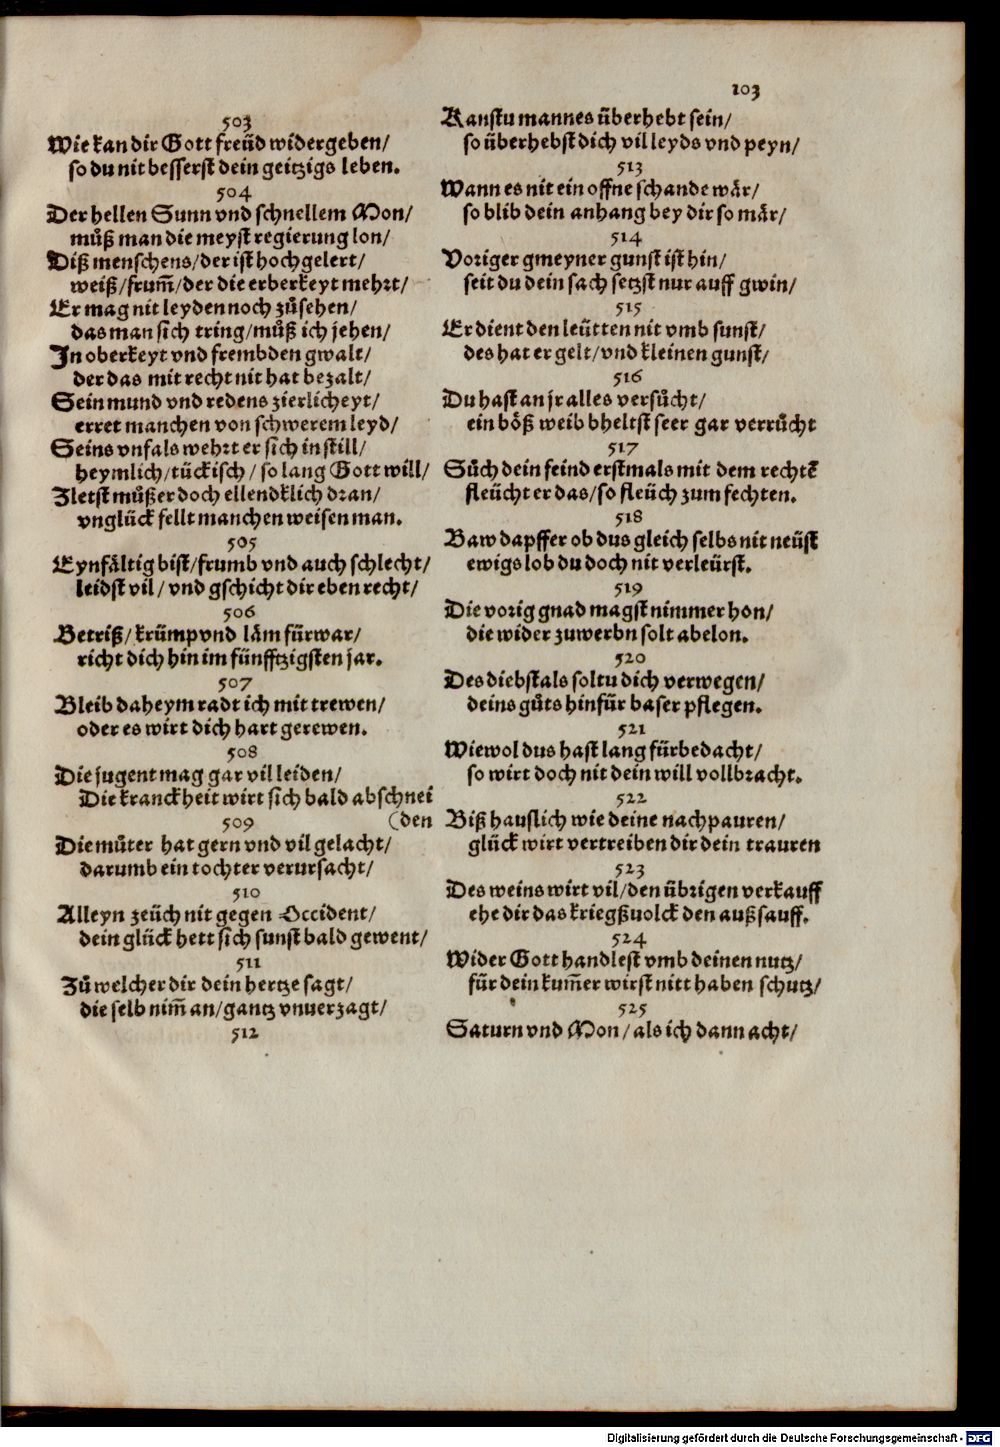 103
503
Wie kan dir Gott freüd widergeben/
so du nit besserst dein geitzigs leben.
504
Der hellen Sunn vnd schnellem Mon/
müß man die meyst regierung lon/
Diß menschens/der ist hochgelert/
weiß/frum̃/der die erberkeyt mehrt/
Er mag nit leyden noch zůsehen/
das man sich tring/můß ich jehen/
In oberkeyt vnd frembden gwalt/
der das mit recht nit hat bezalt/
Sein mund vnd redens zierlicheyt/
erret manchen von schwerem leyd/
Seins vnfals wehrt er sich in still/
heymlich/tückisch/so lang Gott will/
Zletst můßer doch ellendklich dran/
vnglück fellt manchen weisen man.
505
Eynfältig bist/frumb vnd auch schlecht/
leidst vil/vnd gschicht dir eben recht/
506
Betriß/krümp vnd läm fürwar/
richt dich hin im fünfftzigsten jar.
507
Bleib daheym radt ich mit trewen/
oder es wirt dich hart gerewen.
508
Die jugent mag gar vil leiden/
Die kranckheit wirt sich bald abschnei
(den
509
Die můter hat gern vnd vil gelacht/
darumb ein tochter verursacht/
510
Alleyn zeüch nit gegen Occident/
dein glück hett sich sunst bald gewent/
511
Zů welcher dir dein hertze sagt/
die selb nim̃ an/gantz vnuerzagt/
512
Kanstu mannes überhebt sein/
so überhebst dich vil leyds vnd peyn/
513
Wann es nit ein offne schande wär/
so blib dein anhang bey dir so mär/
514
Voriger gmeyner gunst ist hin/
seit du dein sach setzst nur auff gwin/
515
Er dient den leütten nit vmb sunst/
des hat er gelt/vnd kleinen gunst/
516
Du hast an jr alles versůcht/
ein böß weib bheltst seer gar verrůcht
517
Sůch dein feind erstmals mit dem rechtē
fleücht er das/so fleüch zum fechten.
518
Baw dapffer ob dus gleich selbs nit neüst
ewigs lob du doch nit verleürst.
519
Die vorig gnad magst nimmer hon/
die wider zuwerbn solt abelon.
520
Des diebstals soltu dich verwegen/
deins gůts hinfür baser pflegen.
521
Wiewol dus hast lang fürbedacht/
so wirt doch nit dein will vollbracht.
522
Biß hauslich wie deine nachpauren/
glück wirt vertreiben dir dein trauren
523
Des weins wirt vil/den übrigen verkauff
ehe dir das kriegßuolck den auß sauff.
524
Wider Gott handlest vmb deinen nutz/
für dein kum̃er wirst nitt haben schutz/
525
Saturn vnd Mon/als ich dann acht/
Digitalisierung gefördert durch die Deutsche Forschungsgemeinschaft - DFG